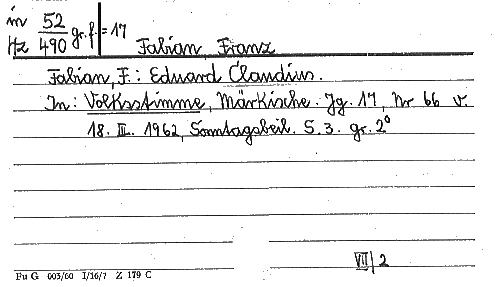 in 52
Hz 490 gr.f. = 17
Fabian, Franz
Fabian, F.: Eduard Claudius.
In: Volksstimme, Märkische. Jg. 17, Nr 66 v.
18. III. 1962, Sonntagsbeil. S. 3. gr. 2°
VII/2
Fu G 003/60 I/16/7 Z 179 C